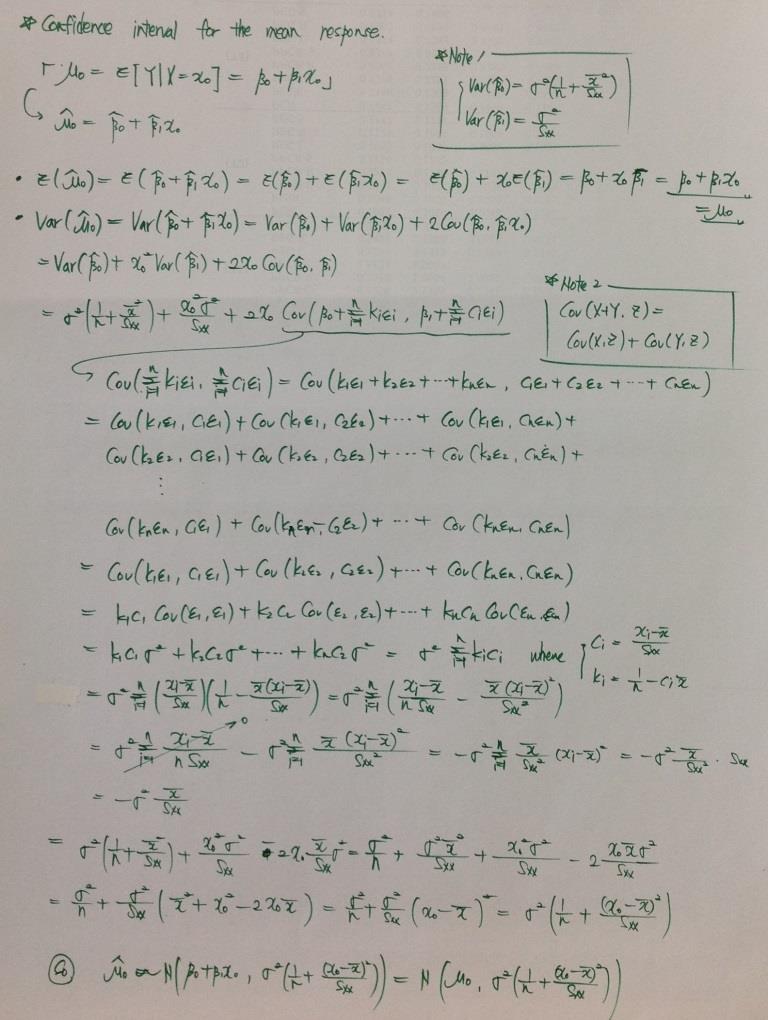 * Confidence interval for the mean response.
「μ₀ = E[Y|X=x₀] = β₀+β₁x₀」
μ̂₀ = β̂₀ + β̂₁x₀
* Note 1
Var(β̂₀) = σ²(1/n + x̄²/Sxx)
Var(β̂₁) = σ²/Sxx
• E(μ̂₀) = E(β̂₀+β̂₁x₀) = E(β̂₀)+E(β̂₁x₀) = E(β̂₀) + x₀E(β̂₁) = β₀+x₀β₁ = β₀+β₁x₀
= μ₀
• Var(μ̂₀) = Var(β̂₀+β̂₁x₀) = Var(β̂₀)+Var(β̂₁x₀)+2Cov(β̂₀, β̂₁x₀)
= Var(β̂₀)+x₀²Var(β̂₁)+2x₀Cov(β̂₀, β̂₁)
= σ²(1/n + x̄²/Sxx) + x₀²σ²/Sxx + 2x₀ Cov(β₀+Σⁿᵢ₌₁kᵢεᵢ, β₁+Σⁿᵢ₌₁cᵢεᵢ)
* Note 2
Cov(X+Y, Z) =
Cov(X,Z)+Cov(Y,Z)
Cov(Σⁿᵢ₌₁kᵢεᵢ, Σⁿᵢ₌₁cᵢεᵢ) = Cov(k₁ε₁+k₂ε₂+⋯+knεn, c₁ε₁+c₂ε₂+⋯+cnεn)
= Cov(k₁ε₁, c₁ε₁)+Cov(k₁ε₁, c₂ε₂)+⋯+Cov(k₁ε₁, cnεn)+
Cov(k₂ε₂, c₁ε₁)+Cov(k₂ε₂, c₂ε₂)+⋯+Cov(k₂ε₂, cnεn)+
⋮
Cov(knεn, c₁ε₁)+Cov(knεn, c₂ε₂)+⋯+Cov(knεn, cnεn)
= Cov(k₁ε₁, c₁ε₁)+Cov(k₂ε₂, c₂ε₂)+⋯+Cov(knεn, cnεn)
= k₁c₁Cov(ε₁,ε₁)+k₂c₂Cov(ε₂,ε₂)+⋯+kncnCov(εn,εn)
= k₁c₁σ²+k₂c₂σ²+⋯+kncnσ² = σ²Σⁿᵢ₌₁kᵢcᵢ where
cᵢ = (xᵢ-x̄)/Sxx
kᵢ = 1/n - cᵢx̄
= σ²Σⁿᵢ₌₁((xᵢ-x̄)/Sxx)(1/n - x̄(xᵢ-x̄)/Sxx) = σ²Σⁿᵢ₌₁((xᵢ-x̄)/nSxx - x̄(xᵢ-x̄)²/Sxx²)
= σ²Σⁿᵢ₌₁(xᵢ-x̄)/nSxx → 0 - σ²Σⁿᵢ₌₁ x̄(xᵢ-x̄)²/Sxx² = -σ²Σⁿᵢ₌₁ x̄/Sxx² (xᵢ-x̄)² = -σ² x̄/Sxx² · Sxx
= -σ² x̄/Sxx
= σ²(1/n + x̄²/Sxx) + x₀²σ²/Sxx - 2x₀ x̄/Sxx σ² = σ²/n + σ²x̄²/Sxx + x₀²σ²/Sxx - 2 x₀x̄σ²/Sxx
= σ²/n + σ²/Sxx (x̄²+x₀²-2x₀x̄) = σ²/n + σ²/Sxx (x₀-x̄)² = σ²(1/n + (x₀-x̄)²/Sxx)
So μ̂₀ ~ N(β₀+β₁x₀, σ²(1/n + (x₀-x̄)²/Sxx)) = N(μ₀, σ²(1/n + (x₀-x̄)²/Sxx))